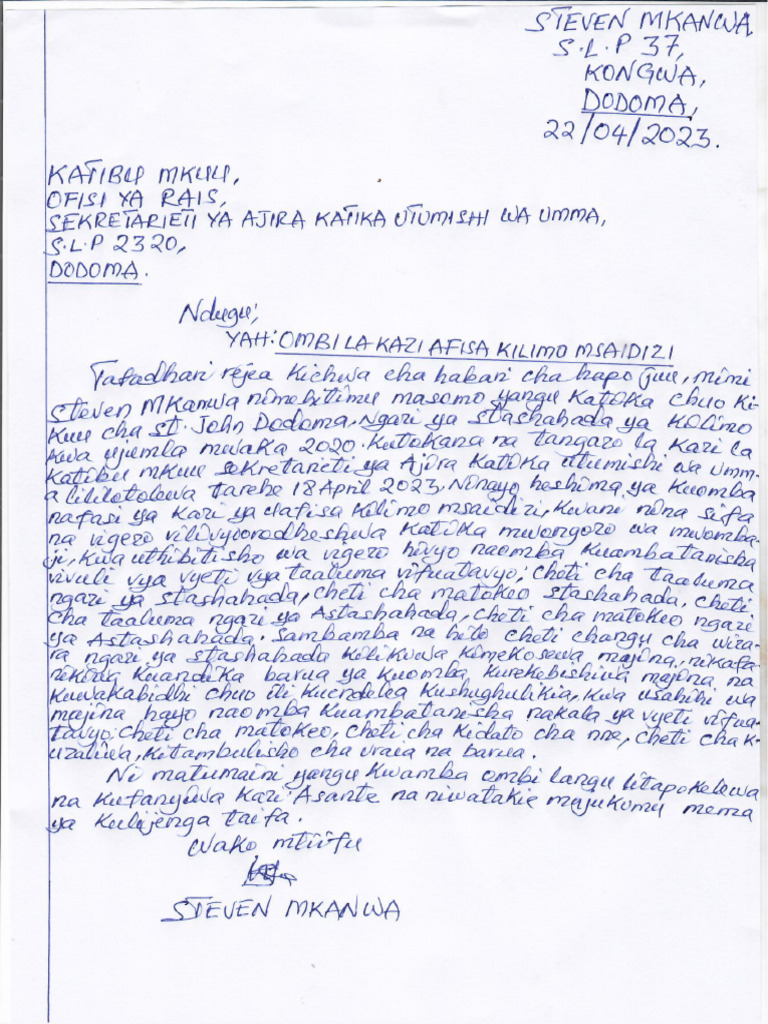 STEVEN MKANWA
S.L.P 37,
KONGWA,
DODOMA,
22/04/2023.
KATIBU MKUU,
OFISI YA RAIS,
SEKRETARIETI YA AJIRA KATIKA UTUMISHI WA UMMA,
S.L.P 2320,
DODOMA.
Ndugu,
YAH: OMBI LA KAZI AFISA KILIMO MSAIDIZI
Tafadhari rejea kichwa cha habari cha hapo juu, mimi
Steven Mkanwa nimehitimu masomo yangu katoka chuo ki-
kuu cha st. John Dodoma, Ngazi ya stashahada ya kilimo
kwa ujumla mwaka 2020. Kutokana na tangazo la kazi la
Katibu mkuu sekretarieti ya Ajira katika utumishi wa umm-
a lililotolewa tarehe 18 April 2023. Ninayo heshima ya kuomba
nafasi ya kazi ya afisa kilimo msaidizi, kwani nina sifa
na vigezo vilivyoorodheshwa katika mwongozo wa mwomba-
ji, kwa uthibitisho wa vigezo hivyo naomba kuambatanisha
vivuli vya vyeti vya taaluma vifuatavyo; cheti cha taaluma
ngazi ya stashahada, cheti cha matokeo stashahada, cheti
cha taaluma ngazi ya Astashahada, cheti cha matokeo ngazi
ya Astashahada. Sambamba na hilo cheti changu cha wiza-
ra ngazi ya stashahada kilikuwa kimekosewa majina, nikafa-
nikiwa kuandika barua ya kuomba kurekebishiwa majina na
kuwakabidhi chuo ili kuendelea kushughulikia, kwa usahihi wa
majina hayo naomba kuambatanisha nakala ya vyeti vifua-
tavyo; cheti cha matokeo, cheti cha kidato cha nne, cheti cha k-
uzaliwa, kitambulisho cha uraia na barua.
Ni matumaini yangu kwamba ombi langu litapokelewa
na kufanyiwa kazi. Asante na niwatakie majukumu mema
ya kulijenga taifa.
Wako mtiifu
STEVEN MKANWA